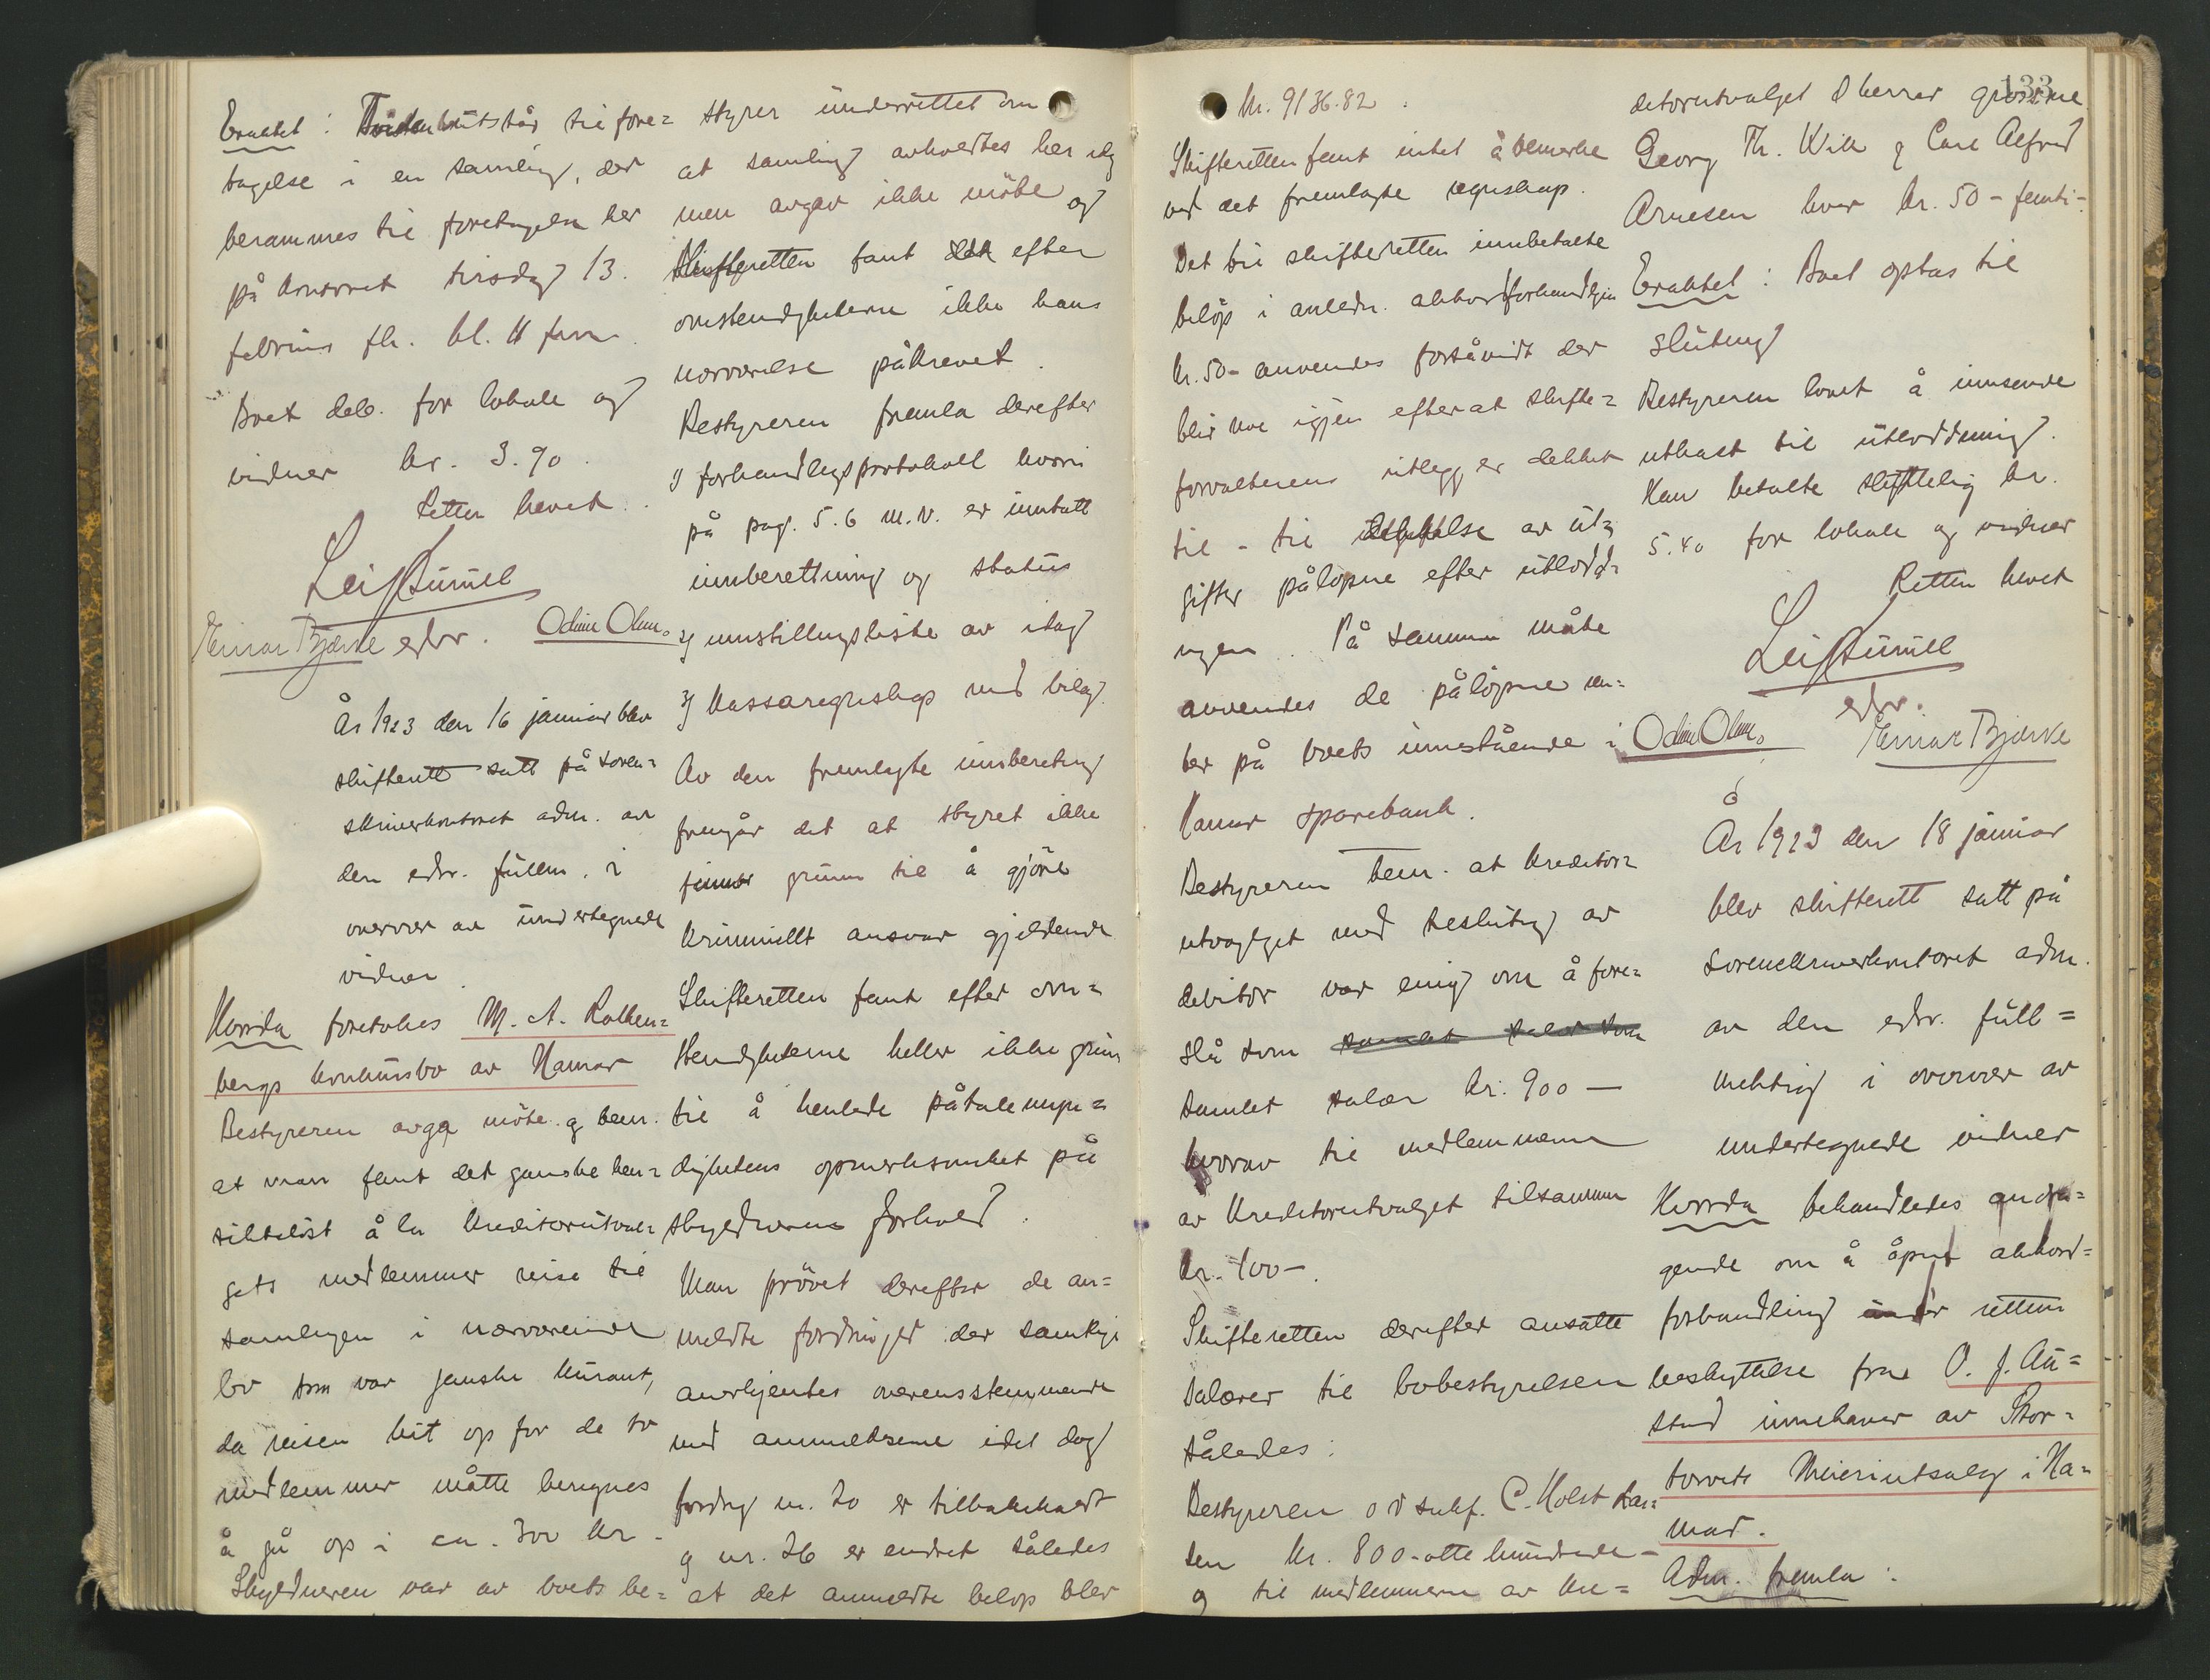 Eraktet: Tvisten utstår til fore=
tagelse i en samling, der
berammes til foretagelse her
på kontoret tirsdag 13.
februar fk. kl. 11 form.
Boet deb. for lokale og
vidner kr. 3.90.
Retten hevet.
Leif
Einar Bjærke edsv. Odin Olsen.
År 1923 den 16 januar blev
skifterett satt på soren=
skriverkontoret adm. av
den edsv. fullm. i
overvær av undertegnede
vidner.
Hvorda foretokes M. A. Rothen=
bergs konkursbo av Hamar
Bestyreren avga møte og bem.
at man fant det ganske hen=
siktsløst å la kreditorutval=
gets medlemmer reise til
samlingen i nærværende
bo som var ganske kurant,
da reisen hit op for de to
medlemmer måtte beregnes
å gå op i ca. 300 kr.
Skyldneren var av boets be=
styrer underrettet om
at samling avholdtes her idag
men avgav ikke møte og
Skifteretten fant efter
omstendighetene ikke hans
nærværelse påkrevet.
Bestyreren fremla derefter
1) forhandlingsprotokoll hvori
på pag. 5.6 m.v. er inntatt
innberettning og status
2) innstillingsliste av idag
3) Kassaregnskap med bilag.
Av den fremlagte innberetning
fremgår det at styret ikke
finner grunn til å gjøre
kriminellt ansvar gjeldende
Skifteretten fant efter om=
stendighetene heller ikke grunn
til å henlede påtalemyn=
dighetens opmerksomhet på
skyldnerens forhold.
Man prøvet derefter de an=
meldte fordringer der samtlige
anerkjentes overensstemmende
med anmeldelsene idet dog
fordring nr. 20 er tilbakekaldt
og nr. 26 er endret således
at det anmeldte beløp blev
133
kr. 9136.82.
Skifteretten fant intet å bemerke
ved det fremlagte regnskap.
Det til skifteretten innbetalte
beløp i anledn. akkordforhandlingen
kr. 50- anvendes forsåvidt der
blir noe igjen efterat skifte=
forvalterens utlegg er dekket
til - til av ut=
gifter påløpne efter utlodd=
ngen. På samme måte
anvendes de påløpne ren=
ter på boets innestående i
Hamar sparebank.
Bestyreren bem. at kreditor=
utvalget med beslutning av
debitor var enig om å fore=
slå som
samlet salær kr. 900 —
hvorav til medlemmene
av kreditorutvalget tilsammen
kr. 100-.
Skifteretten derefter ansatte
salærer til bobestyrelsen
således:
Bestyreren o r sakf. C. Holst Lar=
sen kr. 800 - otte hundrede -
og til medlemmene av kre=
ditorutvalget d herrer grossene
Georg Th. Wiik og Carl Alfred
Arnesen hver kr. 50 - femti -
Eraktet: Boet optas til
slutning
Bestyreren lovet å innsende
utkast til utloddning.
Han betalte skiftelig kr.
5.40 for lokale og vidner
Retten hevet
Leif
edsv.
Odin Olsen. Einar Bjærke
År 1923 den 18 januar
blev skifterett satt på
sorenskriverkontoret adm.
av den edsv. full=
mektig i overvær av
undertegnede vidner
Hvorda behandledes andra=
gende om å åpne akkord=
forhandling under rettens
beskyttelse fra O. J. Au=
stad innehaver av Stor=
torvets Meieriutsalg i Ha=
mar.
Adm. fremla: